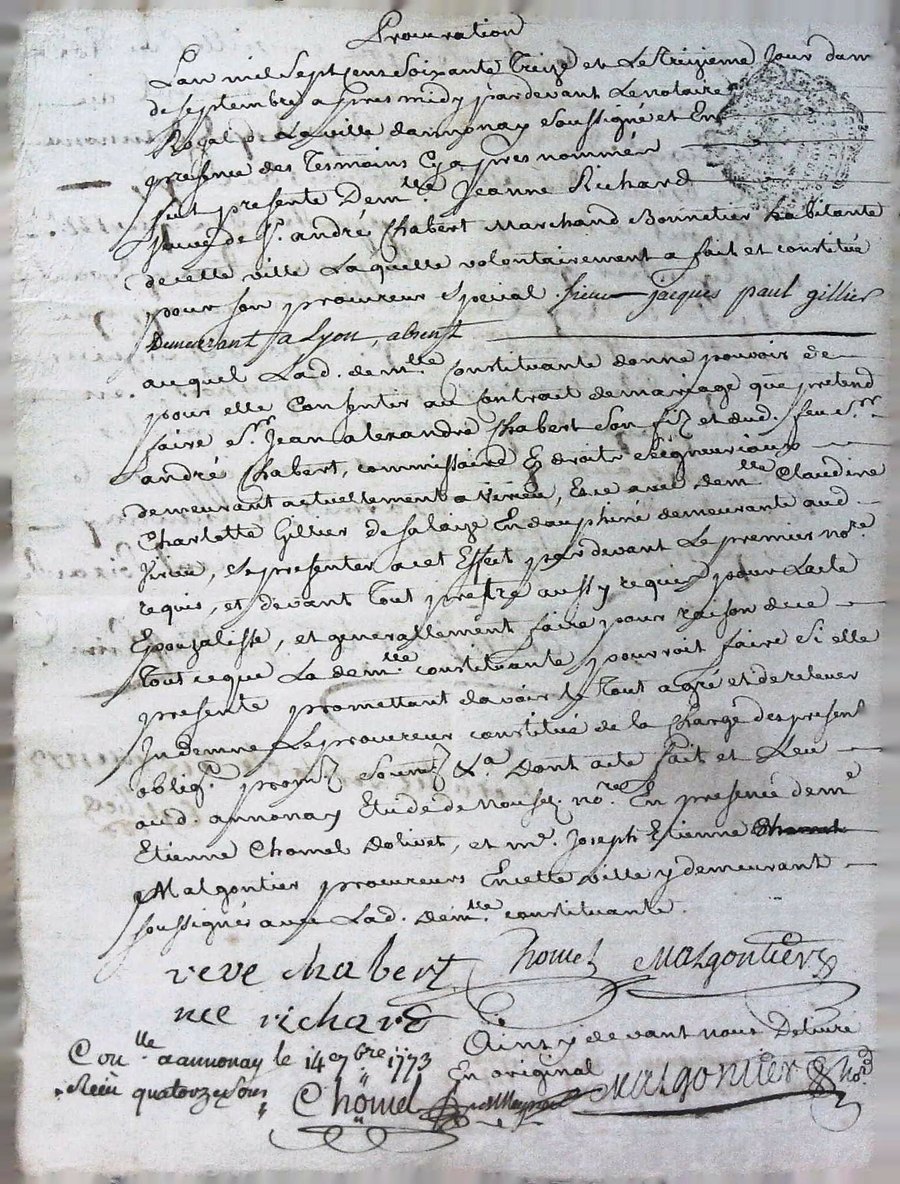 Procuration
Lan mil Sept Cens Soixante Treize et Le Treizieme Jour dam
de septembre apres midy pardevant Le notaire
Royal de La ville dannonay soussigné et En
presence des Tesmoins Cy apres nommén
fut presente Dem.lle Jeanne Richard
veuve de S.r andré Chabert Marchand Bonnetier habitante
de cette ville Laquelle volontairement a fait et constitué
pour son procureur special sieur jacques paul gillier
demeurant a Lyon, absent
auquel Lad. dem.lle Constituante donne pouvoir de
pour elle Consentir au Contrait de mariage que pretend
faire S.r Jean alexandre Chabert son fiz et dud. feu S.r
andré Chabert, commissaire Ez droits seigneuriaux
demeurant actuellement a virieu, Et ce avec dem.lle Claudine
Charlotte Gillier de salaize En dauphiné demeurante aud.
virieu, se presenter a cet Effet pardevant Le premier no.re
requis, et devant Tout prestre aussy requis pour Lacte
Epouzalisse, et generallement faire pour raison de ce
Tout ce que La dem.lle constituante pourroit faire Si elle
presente promettant davoir le Tout agré et de relever
Indemne Le procureur constitué de la Charge des present
obleg.n prom.z soum.z &.a Dont acte fait et Leu
aud. annonay Etude de Nous no.re En presence de m.e
Etienne Chomel Dolivet, et m.e Joseph Etienne
Malgontier procureurs En cette ville y demeurant
soussignés avec Lad. dem.lle constituante.
veve chabert Chomel Malgontier
nee richard
Ainsy devant nous Delivré
Con.lle a annonay le 14 7bre 1773
En original
Receu quatorze sous
Chomel Malgontier no.re